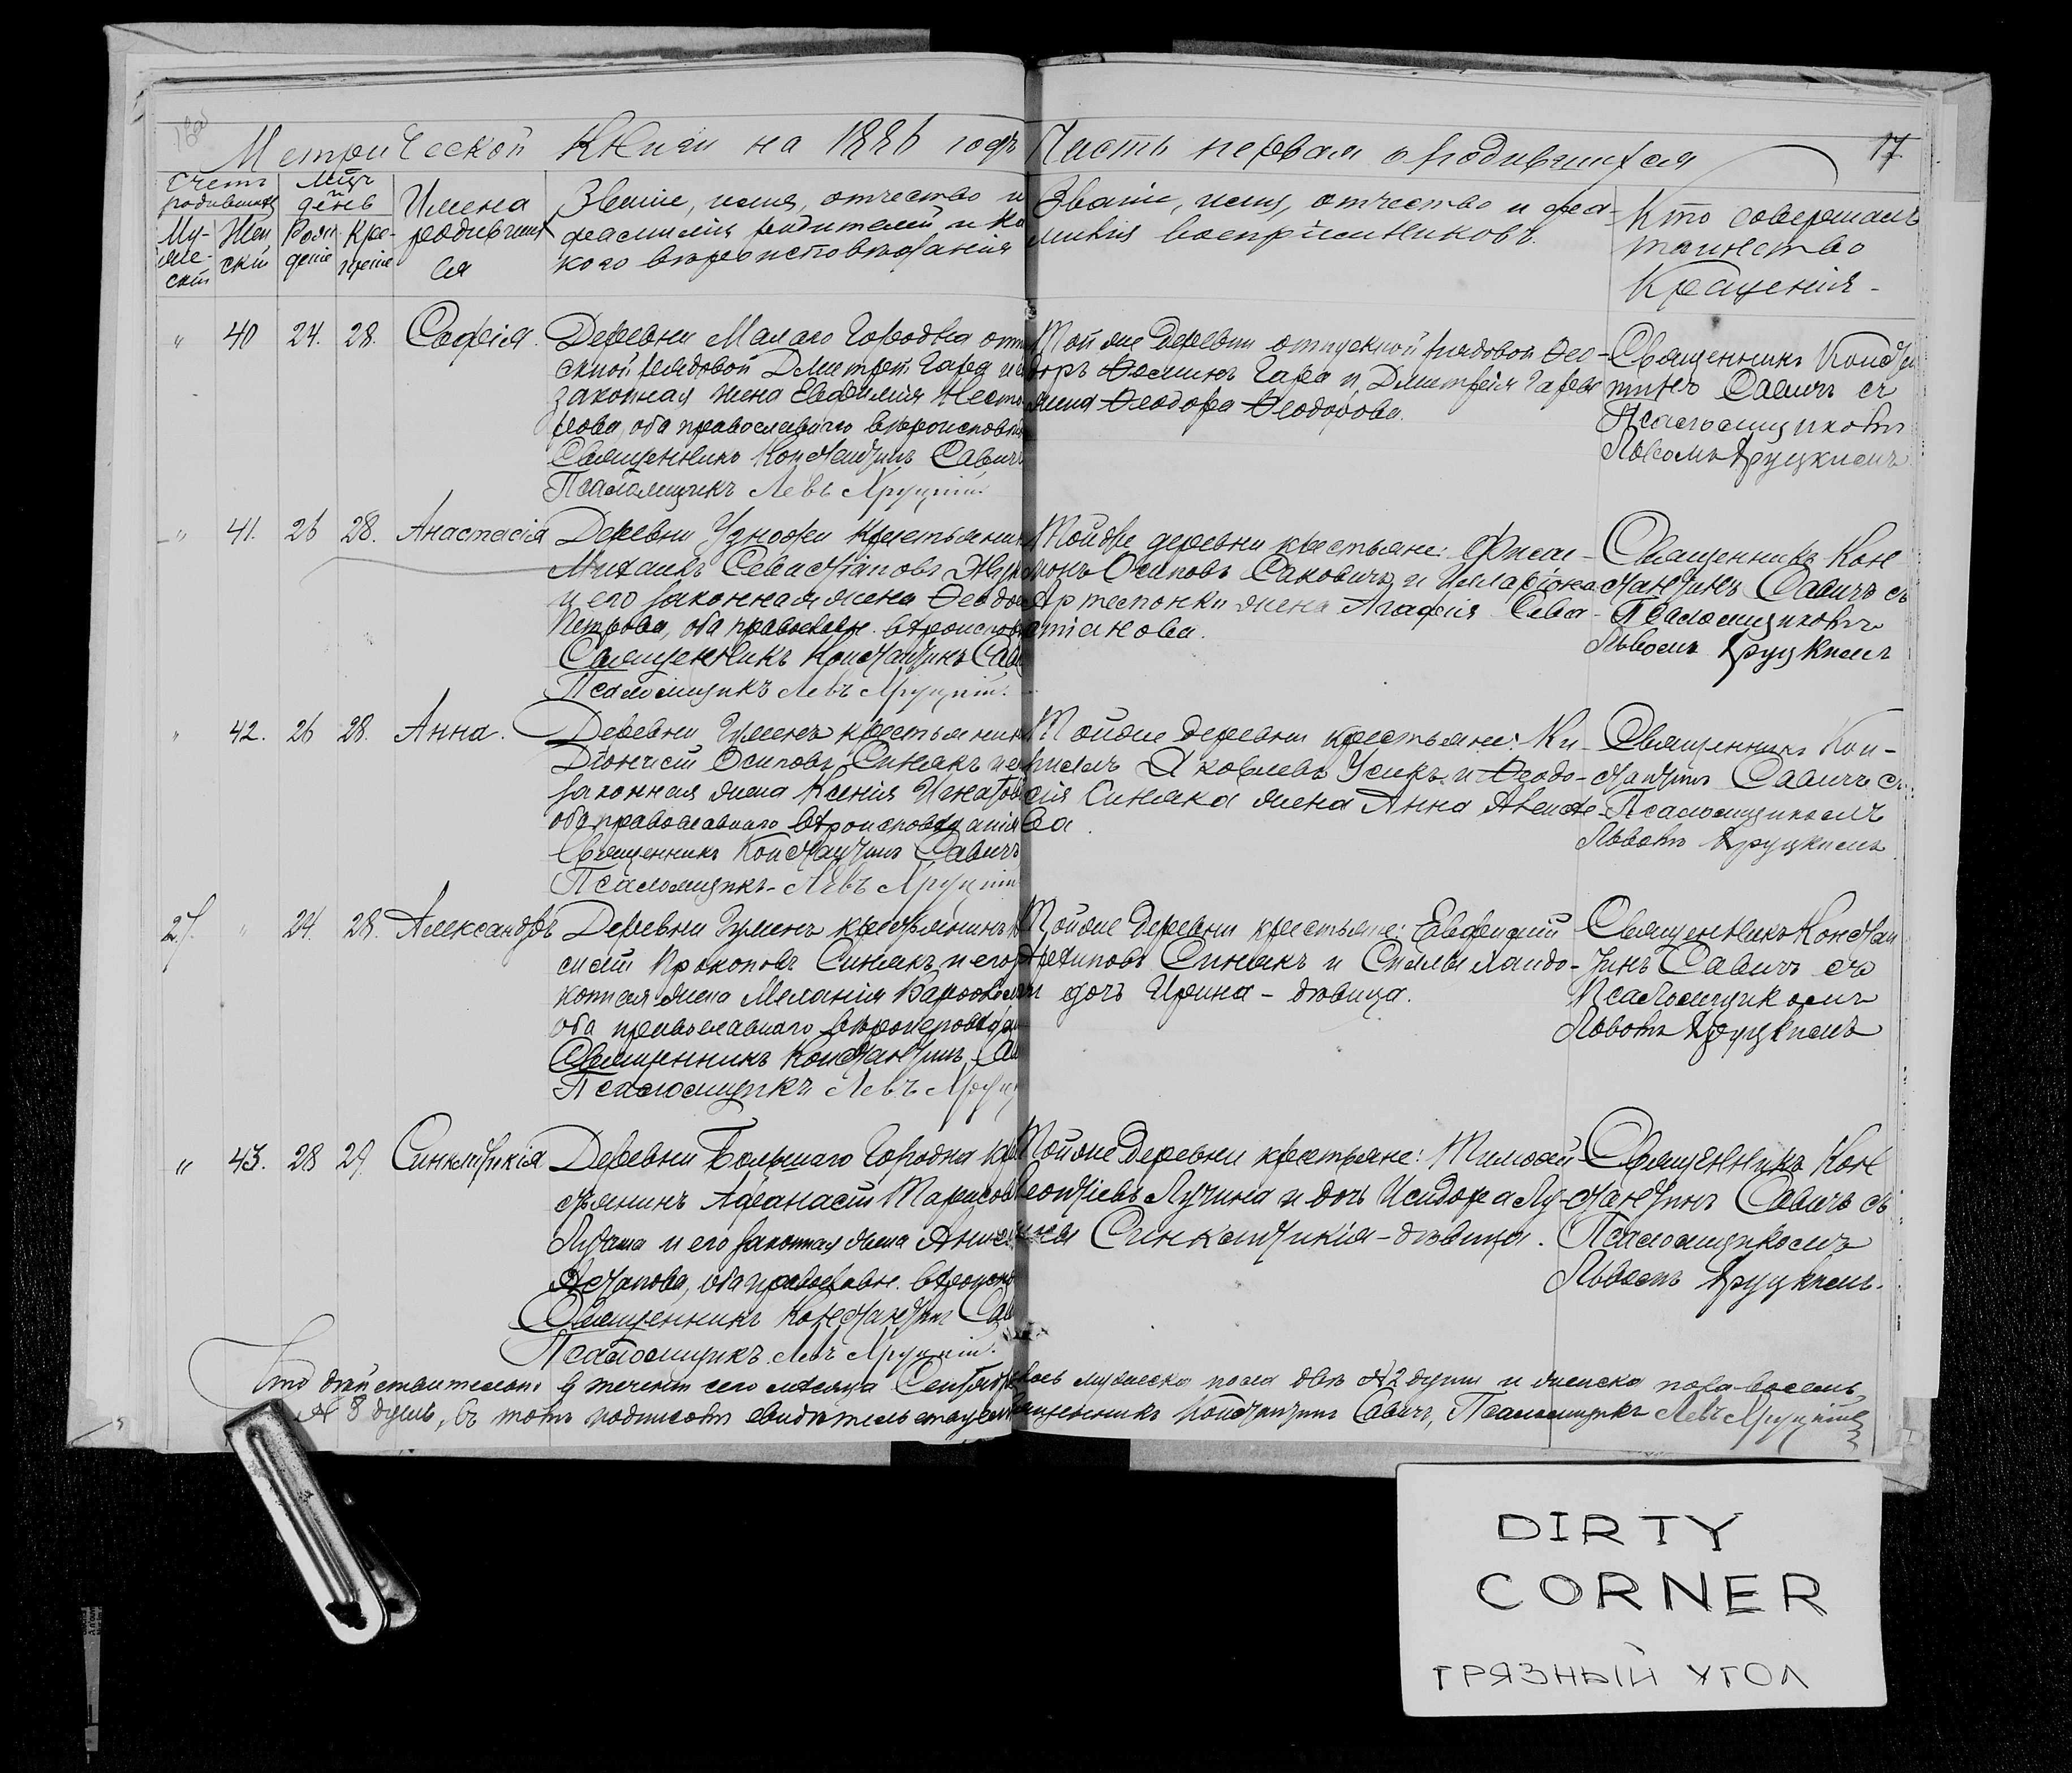 Метрической Книги на 1886 годъ Часть первая о родившихся 17.
Счетъ родившихся
Муже-скій
Жен скій
Мцъ и день
Рожденіе
Крещеніе
Имена родившихся
Званіе, имя, отчество и
фамилія родителей и ка
кого вѣроисповѣданія
Званіе, имя, отчество и фа-
милія воспріемниковъ.
Кто совершалъ
таинство
Крещенія-
" 40 24. 28. Софія.
Деревни Малаго Городна отпу
скной рядовой Дмитрій Гара и
законная жена Евфимія Несто
рова, оба православнаго вѣроисповѣд
Священникъ Константинъ Савичъ
Псаломщикъ Левъ Хруцкій.
Той же деревни отпускной рядовой Ѳео-
доръ Ѳоминъ Гара и Дмитрія Гары
жена Ѳеодора Ѳеодорова.
Священникъ Констан
тинъ Савичъ съ
Псаломщикомъ
Львомъ Хруцкимъ
" 41. 26 28. Анастасія
Деревни Узножи крестьянинъ
Михаилъ Севастіановъ
и его законная жена Ѳеодо
Петрова, оба православн. вѣроиспов
Священникъ Константинъ Сав
Псаломщикъ Левъ Хруцкій.
Той же деревни крестьяне: Фили-
монъ Осиповъ Саковичъ и Илларіона
жена Агафія Сева-
стіанова.
Священникъ Кон
стантинъ Савичъ съ
Псаломщикомъ
Львомъ Хруцкимъ
" 42. 26 28. Анна.
Деревни Гуменъ крестьянинъ
Діонисій Осиповъ Синякъ и его
законная жена Ксенія Игнатов
оба православнаго вѣроисповѣданія
Священникъ Константинъ Савичъ
Псаломщикъ Левъ Хруцкій
Той же деревни крестьяне: Ки-
риллъ Яковлевъ Усикъ и Ѳеодо-
сія Синяка жена Анна
ва.
Священникъ Кон-
стантинъ Савичъ съ
Псаломщикомъ
Львомъ Хруцкимъ
27. " 24. 28. Александръ
Деревни Гуменъ крестьянинъ
Прокоповъ Синякъ и его за
конная жена Меланія
оба православнаго вѣроисповѣда
Священникъ Константинъ Са
Псаломщикъ Левъ Хруц
Той же деревни крестьяне: Евфимій
Архиповъ Синякъ и
дочь Ирина - дѣвица.
Священникъ Констан
тинъ Савичъ съ
Псаломщикомъ
Львомъ Хруцкимъ
" 43. 28 29. Синклитикія
Деревни Большаго Городна кре
стьянинъ Афанасій Тарасов
и его законная жена
оба православн. вѣроиспов
Священникъ Константинъ Сав
Псаломщикъ Левъ Хруцкій.
Той же деревни крестьяне: Тимофей
Леонтіевъ Лучина и дочь Исидора Лу-
чины Синклитикія - дѣвица.
Священникъ Кон
стантинъ Савичъ съ
Псаломщикомъ
Львомъ Хруцкимъ.
Что дѣйствительно въ теченіи сего мѣсяца Сентября мужеска пола двѣ 2 души и женска пола восемь,
8 душъ, въ томъ подписомъ свидѣтельствуемъ Священникъ Константинъ Савичъ, Псаломщикъ Левъ Хруцкій
DIRTY
CORNER
ГРЯЗНЫЙ УГОЛ